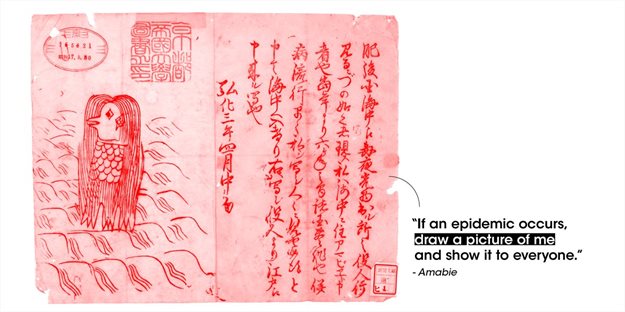 京都
帝國大學
圖書之印
肥後国海中え毎夜光物出ル所之役人行
見るニづの如く者現ス私ハ海中ニ住アマビヱト申
者也当年より六ヶ年之間諸国豊作也併
病流行早々私シ写シ人々ニ見セ候得と
申て海中へ入けり右写シ役人より江戸え
申来ル写也
弘化三年四月中旬
“If an epidemic occurs,
draw a picture of me
and show it to everyone.”
- Amabie